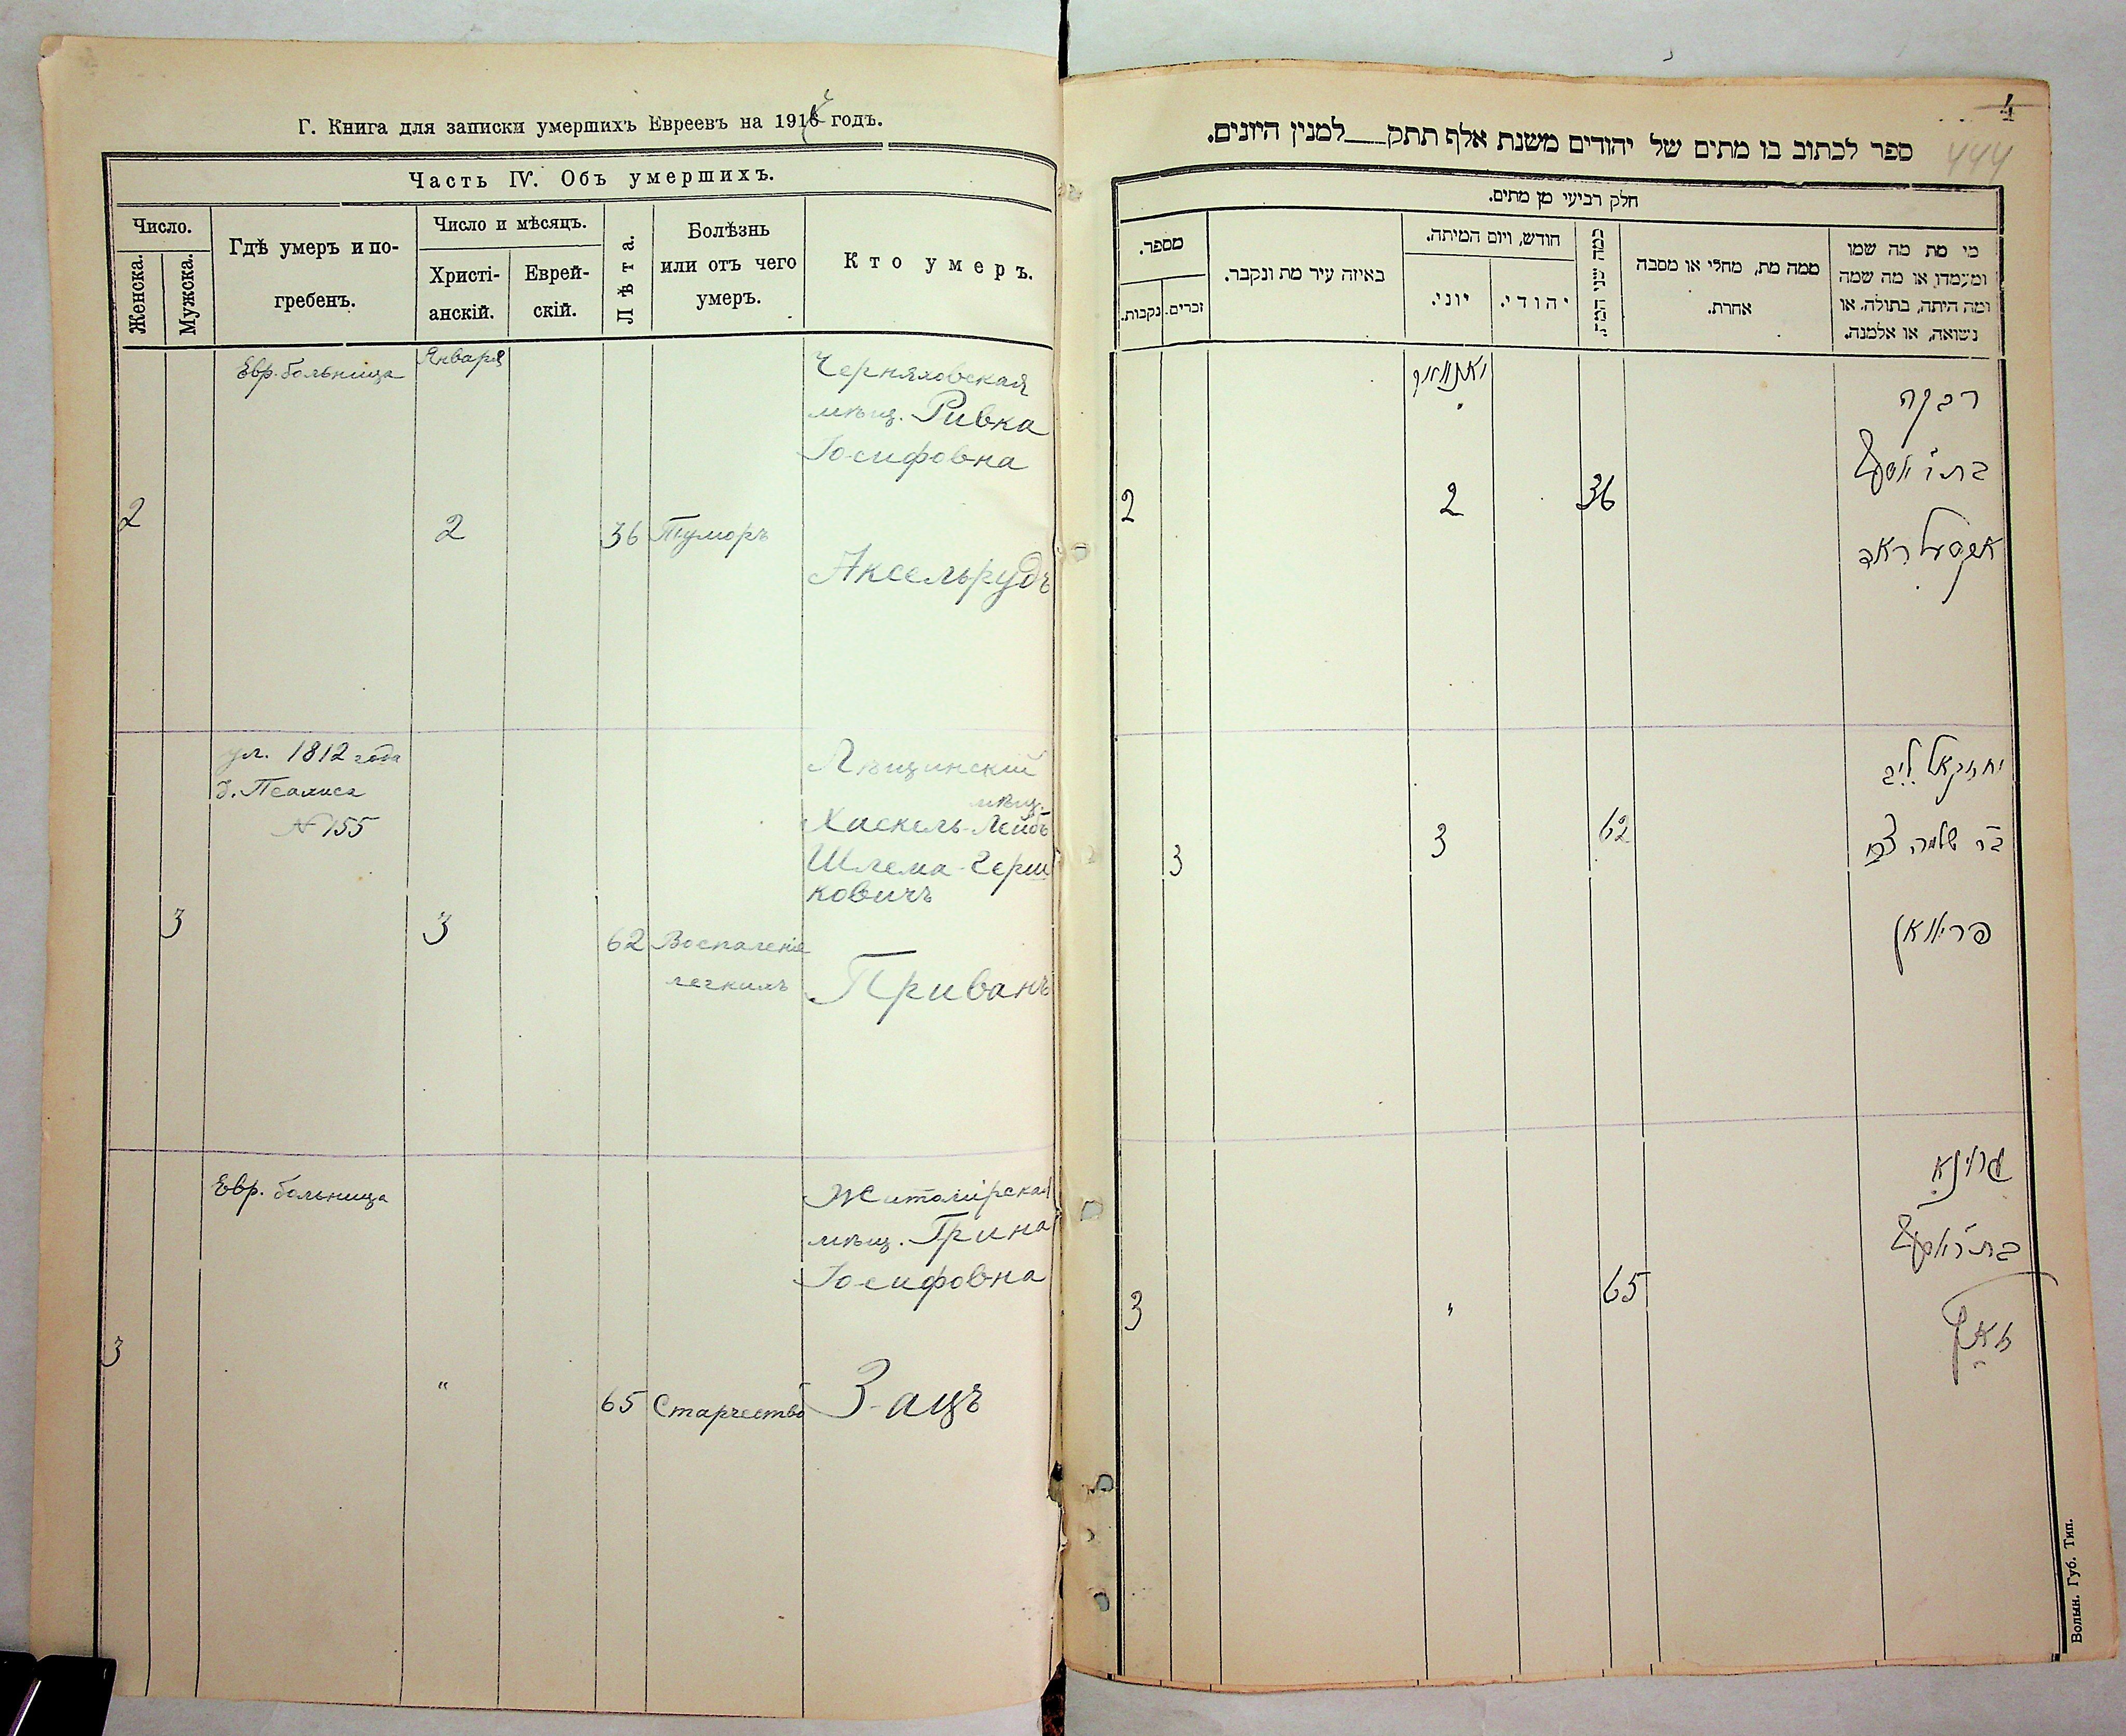 Г. Книга для записки умершихъ Евреевъ на 191 годъ.
Часть IV. Объ умершихъ.
Число.
Женска.
Мужска.
Гдѣ умеръ и по-
гребенъ.
Число и мѣсяцъ.
Христі-
анскій.
Еврей-
скій.
Лѣта.
Болѣзнь
или отъ чего
умеръ.
Кто умеръ.
Евр. больница
Января
Черняховская
мѣщ. Ривка
Іосифовна
2
2
36
Туморъ
Аксельрудъ
ул. 1812 года
д. Псалиса
№ 155
Лѣщинскій
мѣщ.
Хаскель-Лейбъ
Шлема-Герш
ковичъ
3
3
62
Воспаленіе
легкихъ
Приванъ
Евр. больница
Житомірская
мѣщ. Грина
Іосифовна
3
"
65
Старчество
Зацъ
4
444
ספר לכתוב בו מתים של יהודים משנת אלף תתק למנין היונים.
חלק רביעי מן מתים.
מספר.
נקבות.
זכרים.
באיזה עיר מת ונקבר.
חודש, ויום המיתה.
יוני.
יהודי.
כמה שני המת.
ממה מת, מחלי או מסבה
אחרת.
מי מת מה שמו
ומעמדו, או מה שמה
ומה היתה, בתולה, או
נשואה, או אלמנה.
יאנוואר
רבקה
בת ר' יאסעף
2
2
36
אקסעלראד
יחזקאל ליב
ב"ר שלמה צבי
3
3
62
פריוואן
גרינא
בת ר' יאסעף
3
"
65
זאץ
Волын. Губ. Тип.